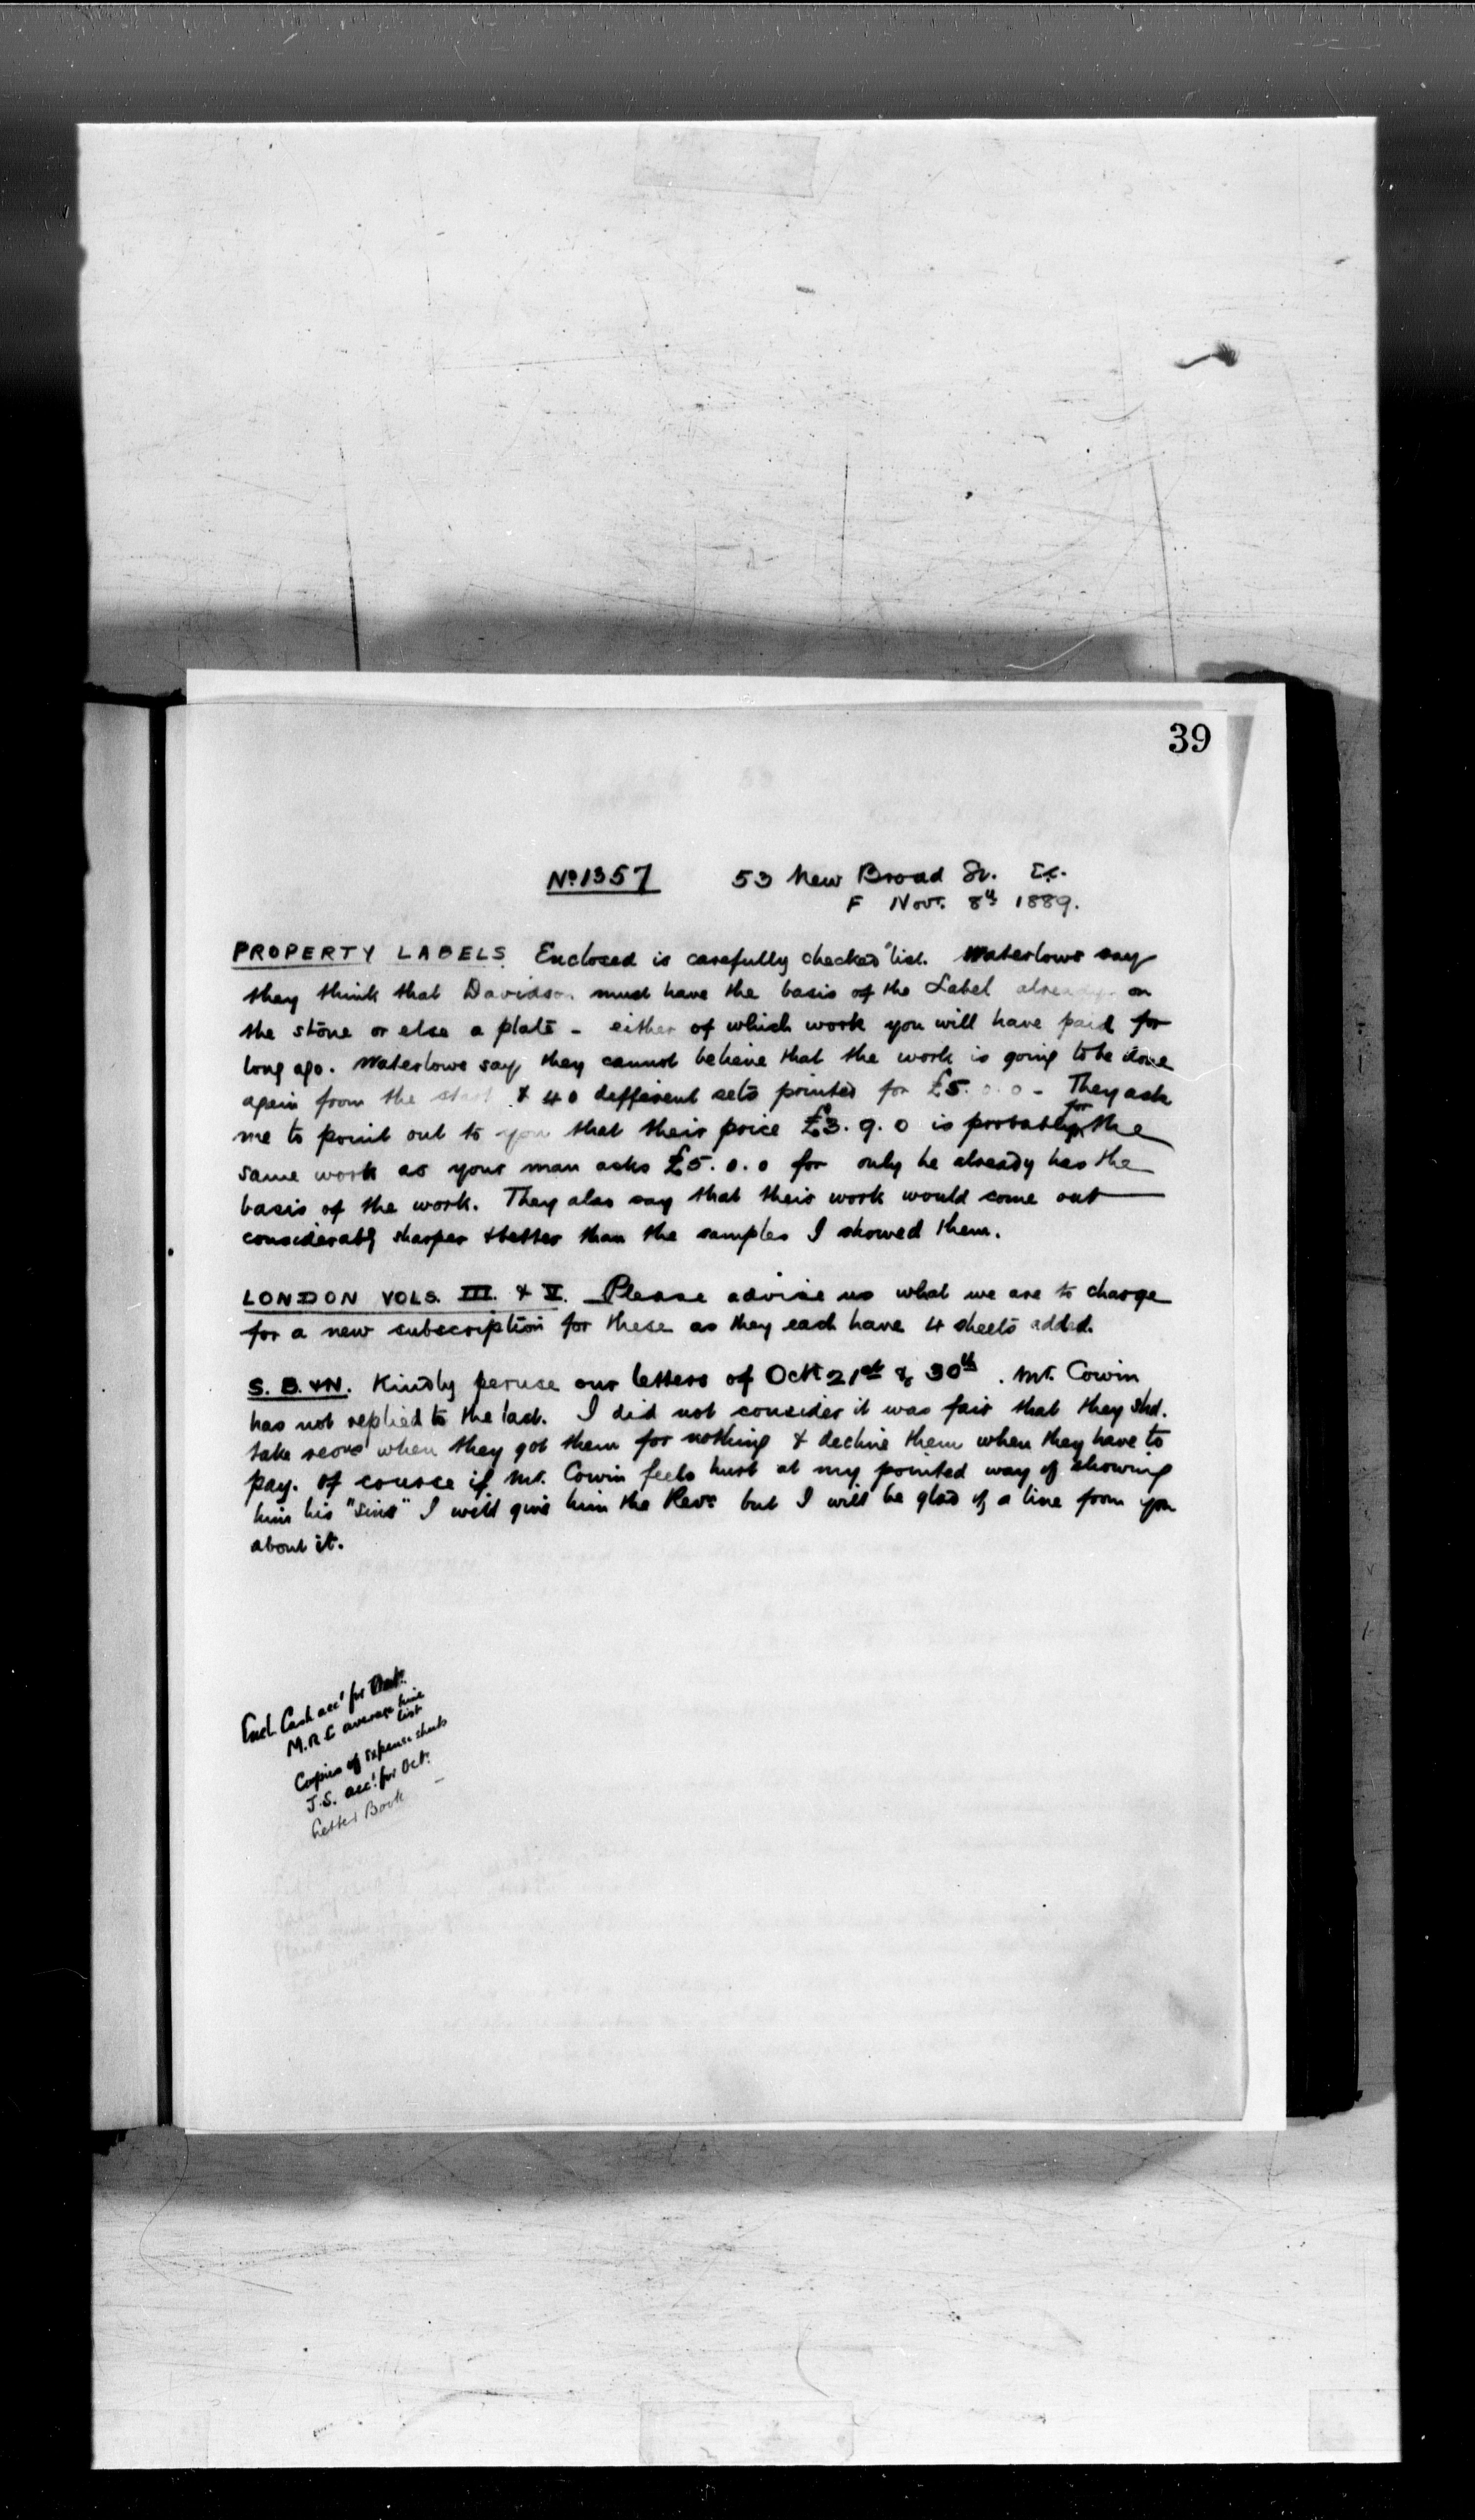 39
No 1357 53 New Broad St. E.C.
F Novr. 8th 1889.
PROPERTY LABELS. Enclosed is carefully checked list. Waterlows say
they think that Davidson must have the basis of the Label already on
the stone or else a plate - either of which work you will have paid for
long ago. Waterlows say they cannot believe that the work is going to be done
again from the start & 40 different sets printed for £5.0.0 - They ask
me to point out to you that their price £3.9.0 is probably for the
same work as your man asks £5.0.0 for only he already has the
basis of the work. They also say that their work would come out
considerably sharper & better than the samples I showed them.
LONDON VOLS. III. & V. Please advise us what we are to charge
for a new subscription for these as they each have 4 sheets added.
S. B. & N. Kindly peruse our letters of Oct 21st & 30th. Mr. Cowin
has not replied to the last. I did not consider it was fair that they shd.
take revs when they got them for nothing & decline them when they have to
pay. Of course if Mr. Cowin feels hurt at my pointed way of showing
him his "sins" I will give him the Revs but I will be glad of a line from you
about it.
Encl. Cash acct for Oct.
M.R.C average time
list
Copies of expense sheets
J.S. acct. for Oct.
Letter Book